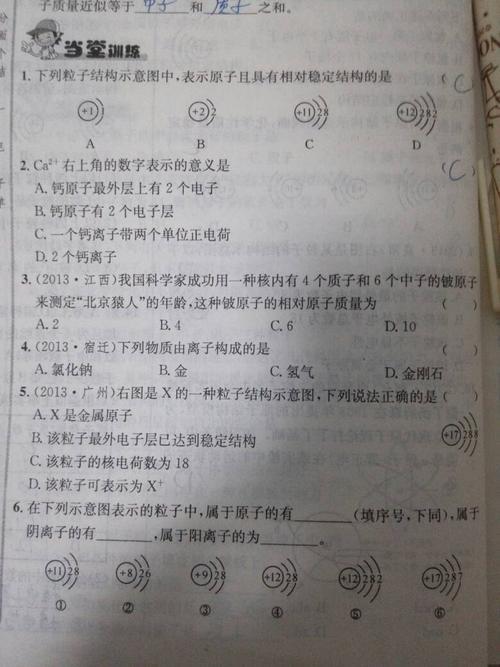 子质量近似等于 中子 和 质子 之和。
当堂训练
1. 下列粒子结构示意图中,表示原子且具有相对稳定结构的是 ( C
+1 +2 2 +11 2 8 +12 2 8 2
A B C D
2. Ca²⁺右上角的数字表示的意义是 ( C )
A. 钙原子最外层上有 2 个电子
B. 钙原子有 2 个电子层
C. 一个钙离子带两个单位正电荷
D. 2 个钙离子
3. (2013·江西)我国科学家成功用一种核内有 4 个质子和 6 个中子的铍原子
来测定“北京猿人”的年龄,这种铍原子的相对原子质量为 ( )
A. 2 B. 4 C. 6 D. 10
4. (2013·宿迁)下列物质由离子构成的是 ( )
A. 氯化钠 B. 金 C. 氢气 D. 金刚石
5. (2013·广州)右图是 X 的一种粒子结构示意图,下列说法正确的是 ( )
A. X 是金属原子
B. 该粒子最外电子层已达到稳定结构
+17 2 8 8
C. 该粒子的核电荷数为 18
D. 该粒子可表示为 X⁺
6. 在下列示意图表示的粒子中,属于原子的有______(填序号,下同),属于
阴离子的有______,属于阳离子的为______。
+11 2 8 +8 2 6 +9 2 8 +12 2 8 +12 2 8 2 +17 2 8 7
① ② ③ ④ ⑤ ⑥